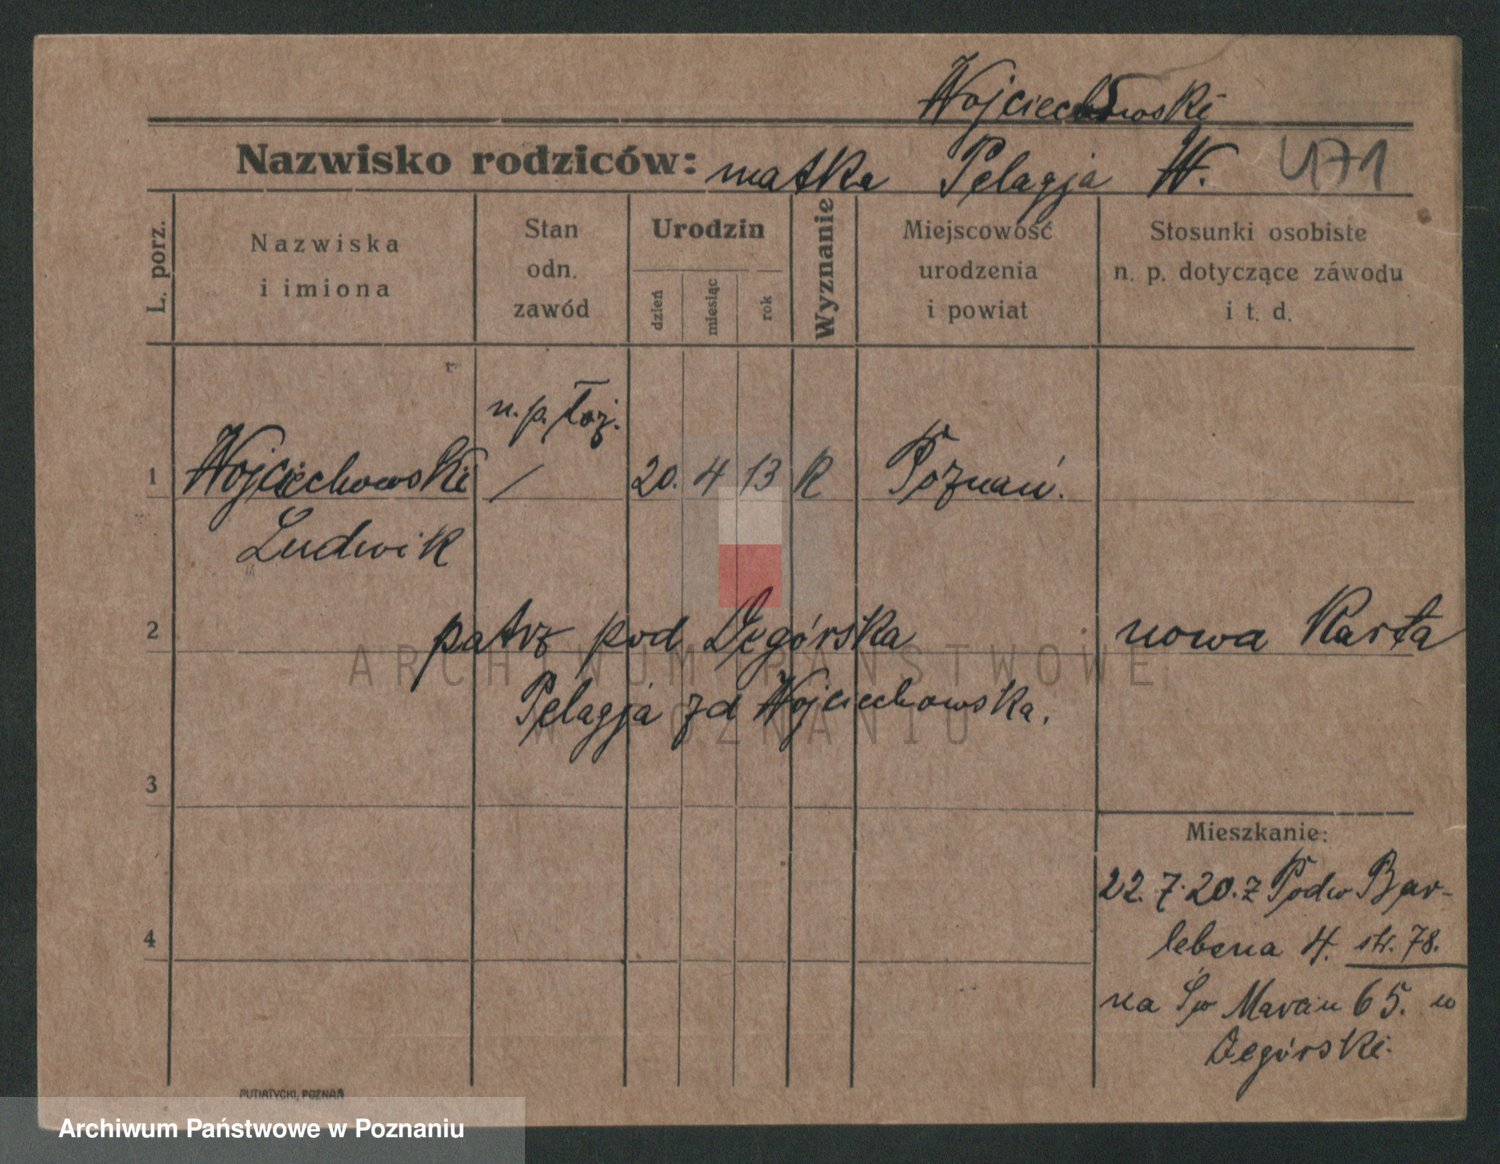 Wojciechowski
Nazwisko rodziców: matka Pelagja W. 471
L. porz.
Nazwiska
i imiona
Stan
odn.
zawód
Urodzin
dzień
miesiąc
rok
Wyznanie
Miejscowość
urodzenia
i powiat
Stosunki osobiste
n. p. dotyczące záwodu
i t. d.
n. p.
1 Wojciechowski / 20. 4 13 R Poznań.
Ludwik
2 patrz pod Degórska nowa Karta
Pelagja zd Wojciechowska.
3
Mieszkanie:
22. 7. 20. z Podw Bar-
4
lebena 4. str. 78.
na Św Marcin 65. u
Degórski.
PUTIATYCKI, POZNAŃ
ARCHIWUM PAŃSTWOWE
W POZNANIU
Archiwum Państwowe w Poznaniu